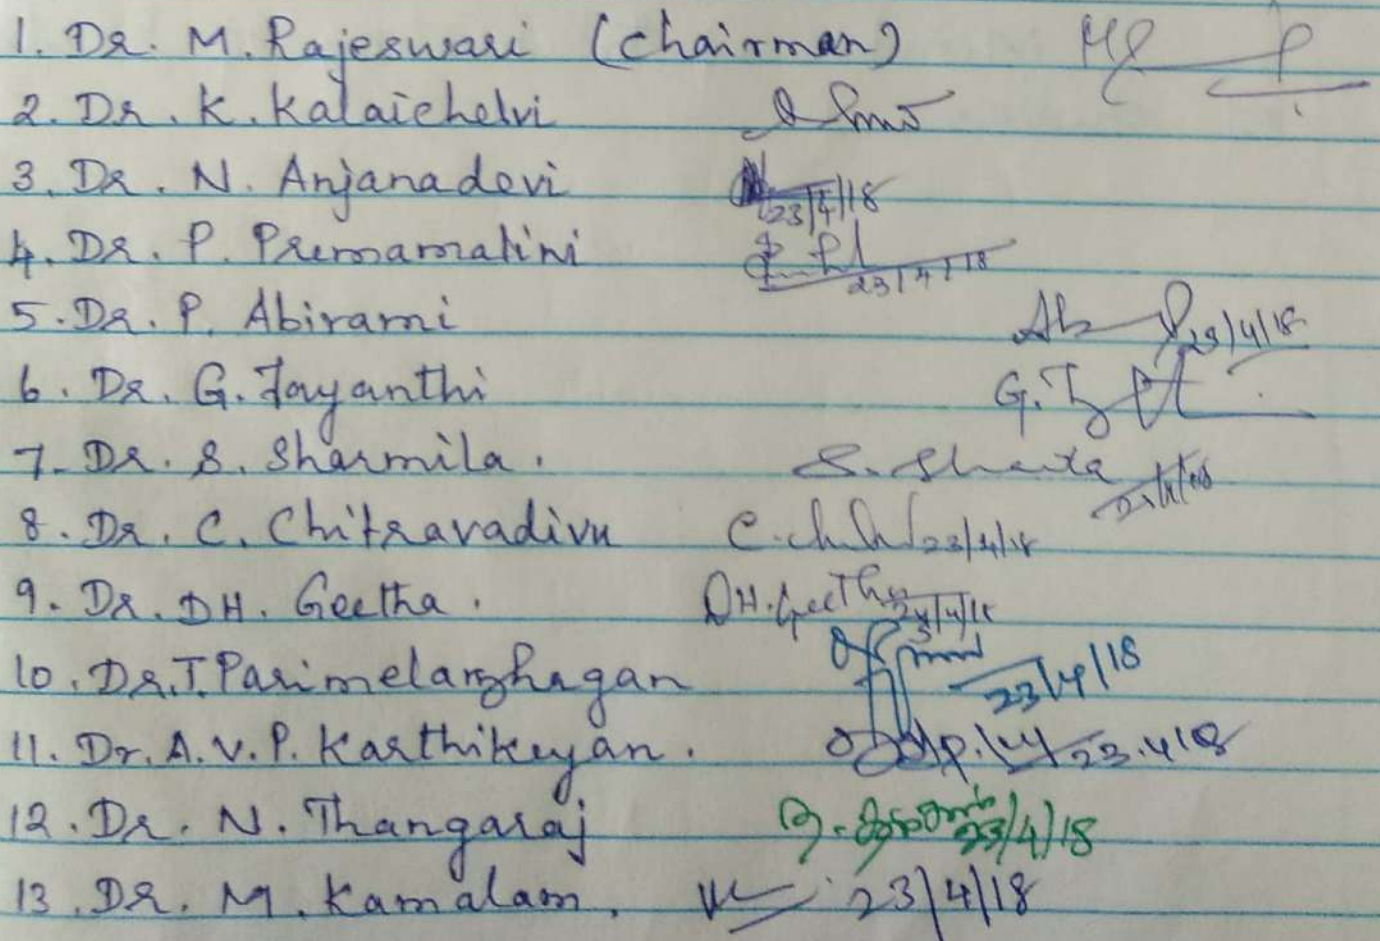 1. Dr. M. Rajeswari (Chairman)
2. Dr. K. Kalaichelvi
3. Dr. N. Anjanadevi 23/4/18
4. Dr. P. Premamalini 23/4/18
5. Dr. P. Abirami 23/4/18
6. Dr. G. Jayanthi
7. Dr. S. Sharmila.
8. Dr. C. Chitravadivu 23/4/18
9. Dr. DH. Geetha. DH. Geetha
10. Dr. T. Parimelazhagan 23/4/18
11. Dr. A.V.P. Karthikeyan. 23.4.18
12. Dr. N. Thangaraj 23/4/18
13. Dr. M. Kamalam. 23/4/18